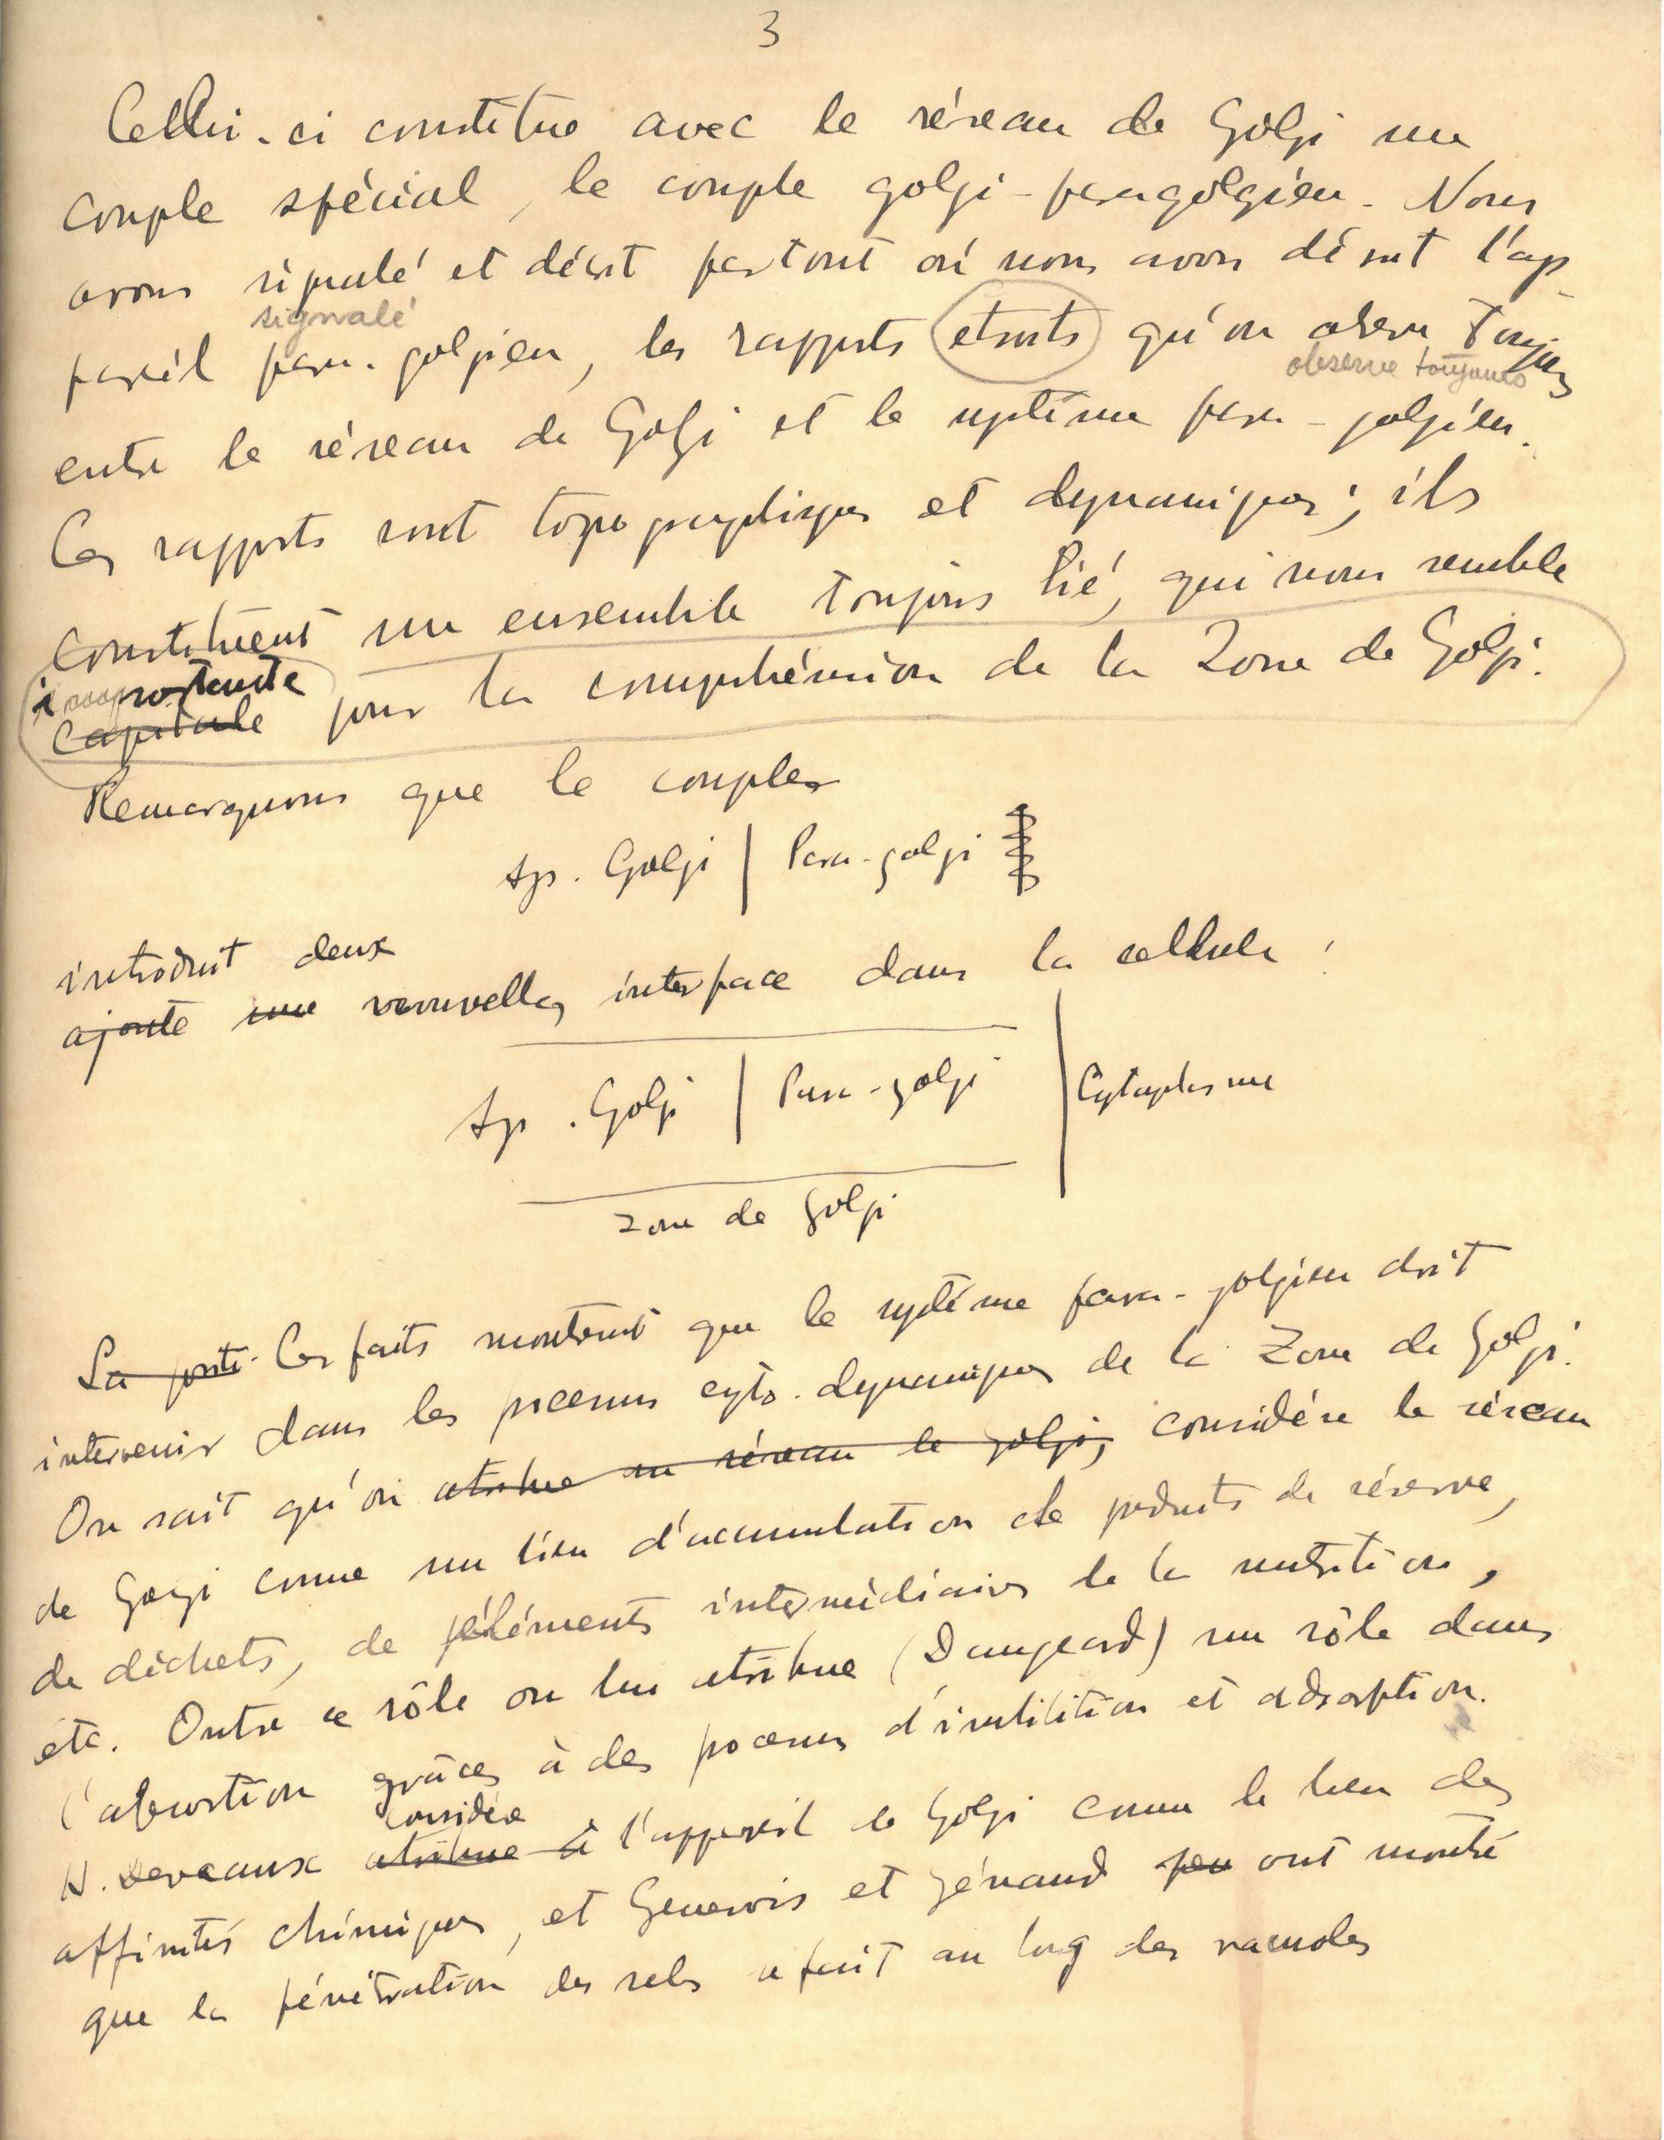 3
Celui-ci constitue avec le réseau de Golgi un
couple spécial, le couple golgi-paragolgien. Nous
avons signalé et décrit partout où nous avons décrit l'ap-
signalé
pareil para-golgien, les rapports etroits qu'on observe toujours
observe toujours
entre le réseau de Golgi et le système para-golgien.
Ces rapports sont topographiques et dynamiques; ils
constituent un ensemble toujours lié, qui nous semble
importante
capitale pour la compréhension de la Zone de Golgi.
Remarquons que le couples
Ap. Golgi | Para-golgi
introduit deux
ajoute une nouvelles interface dans la cellule :
Ap. Golgi | Para-golgi | Cytoplasme
zone de Golgi
La Ces faits montrent que le système para-golgien doit
intervenir dans les procesus cyto-dynamiques de la Zone de Golgi.
On sait qu'on atribue au réseau de golgi, considére le réseau
de Gogi comme un lieu d'accumulation de produits de réserve,
de déchets, de éléments intermédiaires de la nutrition,
etc. Outre ce rôle on lui atribue (Dangeard) un rôle dans
l'absortion grâces à des procesus d'imbibition et adsorption.
considére
H. Deveaux atribue à l'appareil de Golgi comme le lieu des
affinités chimiques, et Genevois et génaud ont montré
que la pénétration des sels se fait au long des vacuoles